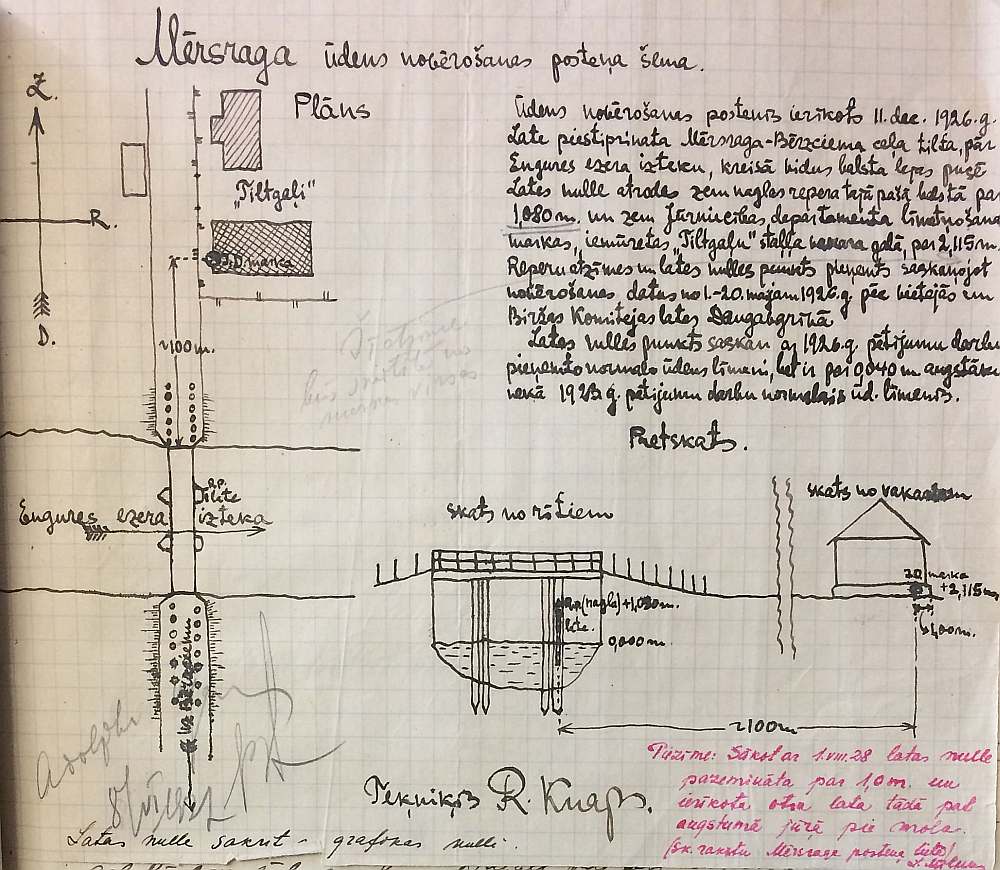 Mērsraga ūdens novērošanas posteņa šema.
Z.
Plāns
R.
D.
"Tiltgali"
J.D. marka
~100m.
rp.
Engures ezera izteka
uz Bērzciemu
Ūdens novērošanas postenis ierīkots 11. dec. 1926. g.
Late piestiprināta Mērsraga-Bērzciema ceļa tiltā, pār
Engures ezera izteku, kreisā vidus balsta lejas pusē
Lates nulle atrodas zem nagles repera tajā pašā balstā, par
1,080 m. un zem Jūrniecības departamenta līmetņošanas
markas, iemūrētas "Tiltgaļu" staļļa galā, par 2,115 m.
Reperu atzīmes un lates nulles punkts pieņemts saskaņojot
novērošanas datus no 1.-20. maijam 1926. g. pēc vietējās un
Biržas Komitejas lates Daugavgrīvā
Lates nulles punkts saskan ar 1926. g. pētījumu darbu
pieņemto normalo ūdens līmeni, bet ir par 0,040 m augstāks
nekā 1923. g. pētījumu darbu normalais ūd. līmenis.
Pretskats.
skats no rītiem
skats no vakariem
rp. (nagla) +1,080 m.
late.
0,000 m.
J.D. marka
+2,115 m
1,00 m.
~100m
Piezīme: Sākot ar 1.VIII.28 latas nulle
pazemināta par 1,0 m. un
ierīkota otra lata tādā pat
augstumā jūrā pie mola.
(Sk. rakstu Mērsraga posteņa lietā)
Tekniķis R. Knaps.
Latas nulle sakrīt - grafikas nulli.